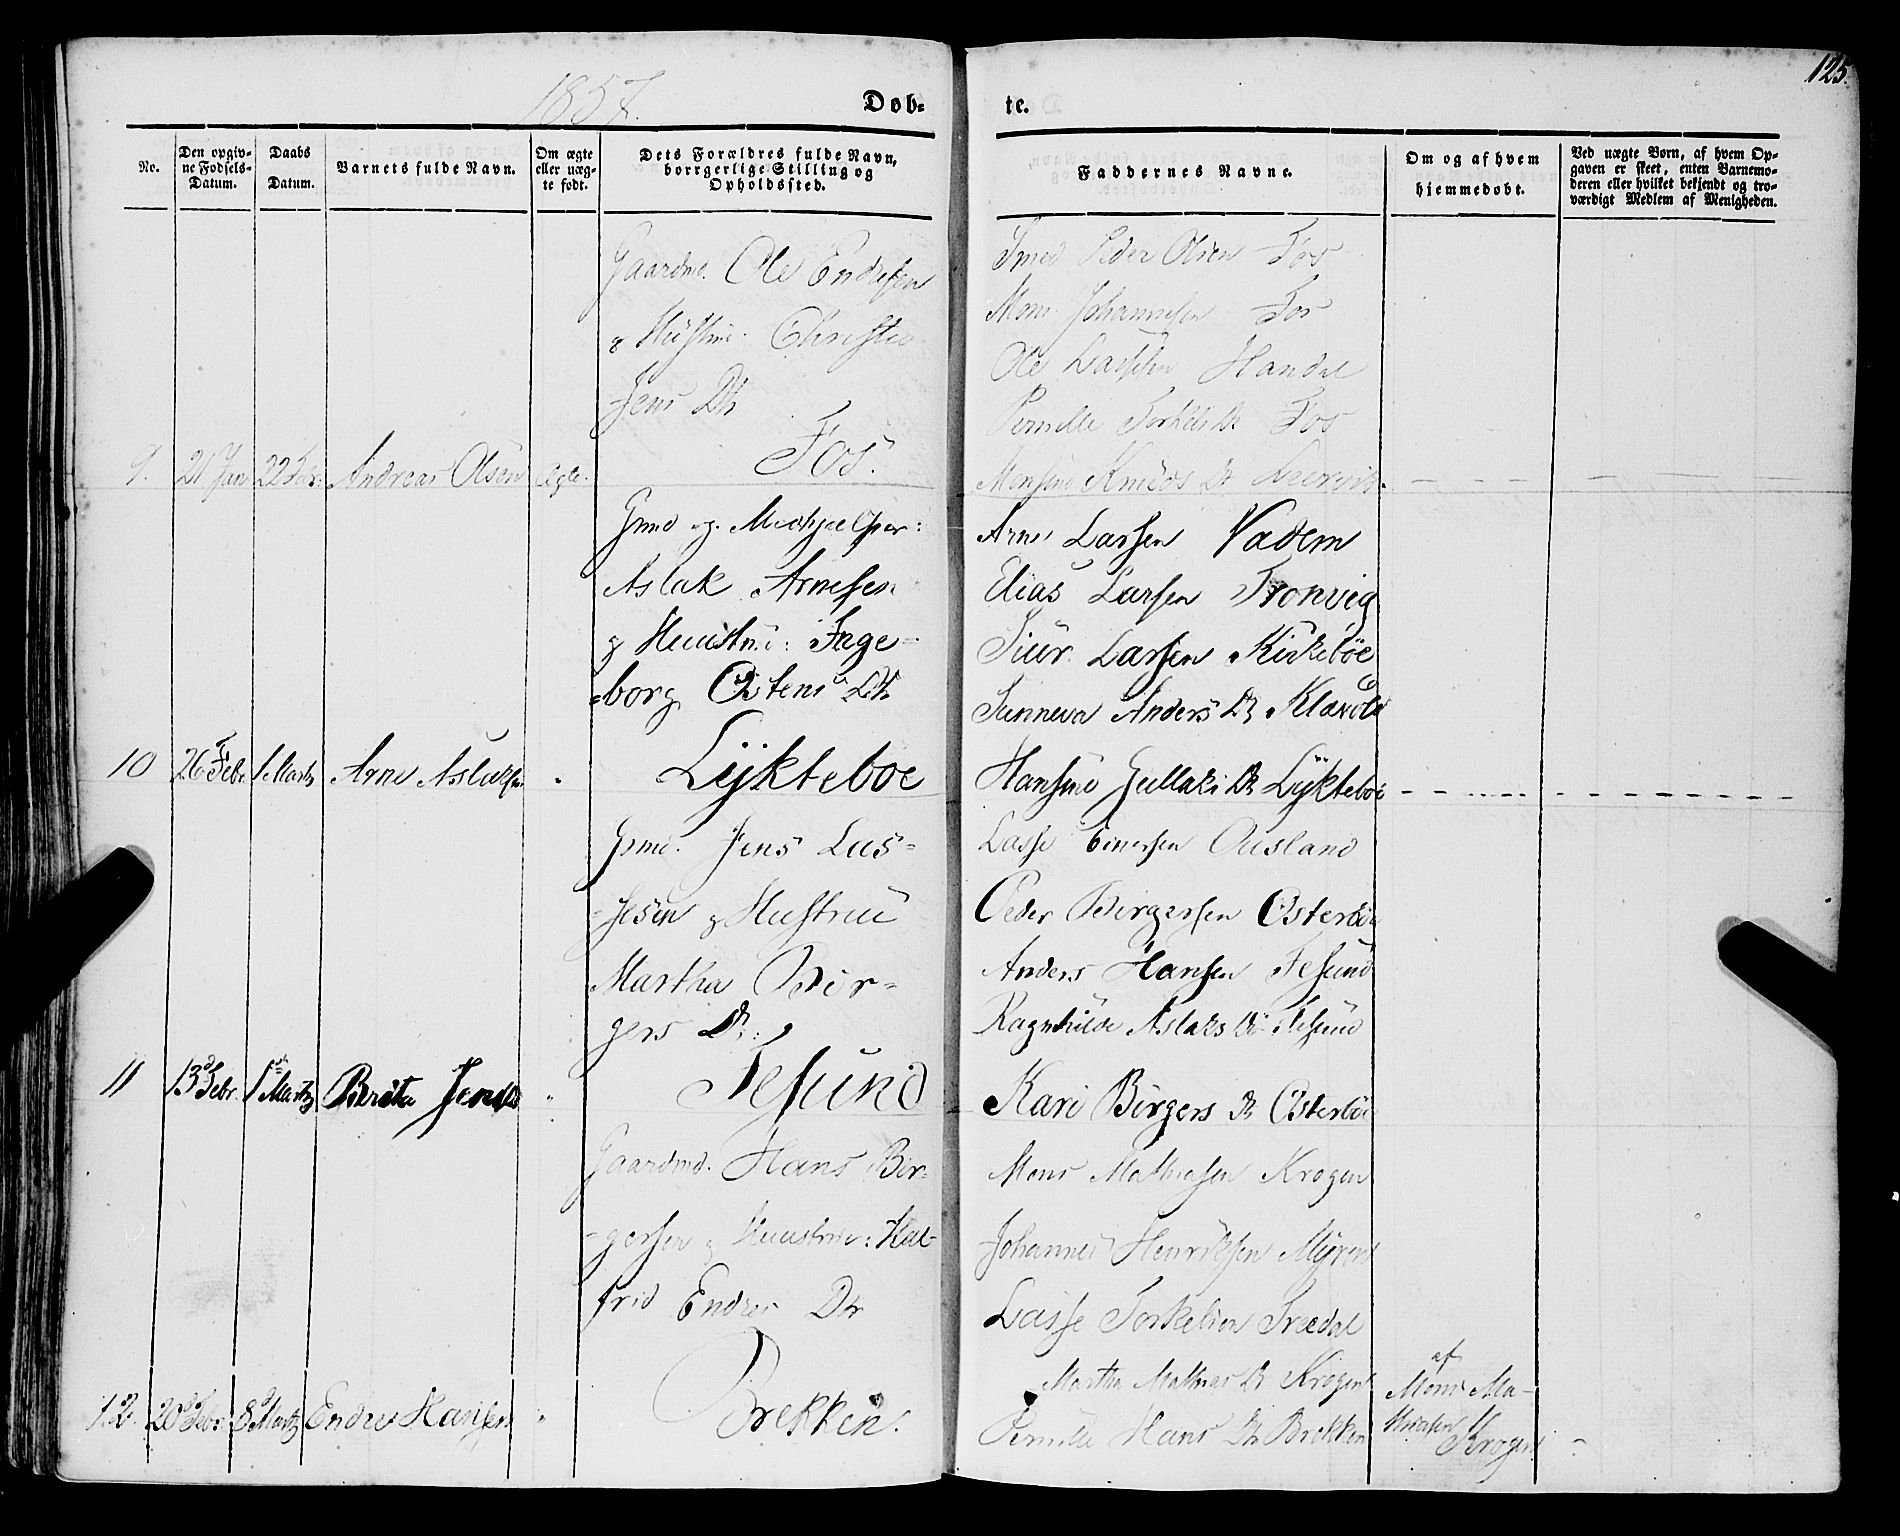 125.
1857.
Døb-
te.
No.
Den opgiv-
ne Fødsels-
Datum.
Daabs
Datum.
Barnets fulde Navn.
Om ægte
eller uæg-
te født.
Dets Forældres fulde Navn,
borgerlige Stilling og
Opholdssted.
Faddernes Navne.
Om og af hvem
hjemmedøbt.
Ved uægte Børn, af hvem Op-
gaven er skeet, enten Barnemo-
deren eller hvilket bekjendt og tro-
værdigt Medlem af Menigheden.
9. 21 Jan 22 Febr. Andreas Olsen Ægte.
Gaardmd. Ole Endresen
& Hustrue Christie
Jens Dtr
Fos.
Smed Peder Olsen Fos
Mons Johannesen Fos
Ole Lassesen Handal
Pernille Torkels Dr Fos
Monsine Knuds Dr
10 26 Febr 1 Martz Arne Aslaksen "
Gmd og
Aslak Arnesen
& Huustrue: Inge-
-borg Østens Dtr
Lÿktebøe
Arne Larsen Vadem
Elias Larsen Tronvig
Siur Larsen Kirkebøe
Sunneva Anders Dr
Hansine Gullaks Dr Lÿktebøe
11 13 Febr. 1 Martz Berita Jensdtr "
Gmd. Jens Las-
-sesen & Hustrue
Martha Bir-
gers Dr:
Tesund
Lasse Einersen Ousland
Peder Birgersen Østerbøe
Anders Hansen Tesund
Ragnhilde Aslaks Dr Tesund
Kari Birgers Dr Østerbøe
12. 20 Febr 8 Martz Endre Hansen "
Gaardmd. Hans Bir-
-gersen & Huustrue: Hal-
frid Endres Dtr
Brekken.
Mons Mathiasen Krogen
Johannes Henriksen Myren
Lasse Torkelsen Træedal
Martha Mathias Dr Krogen
Pernille Hans Dr Brekken
af
Mons Ma-
thiasen
Krogen